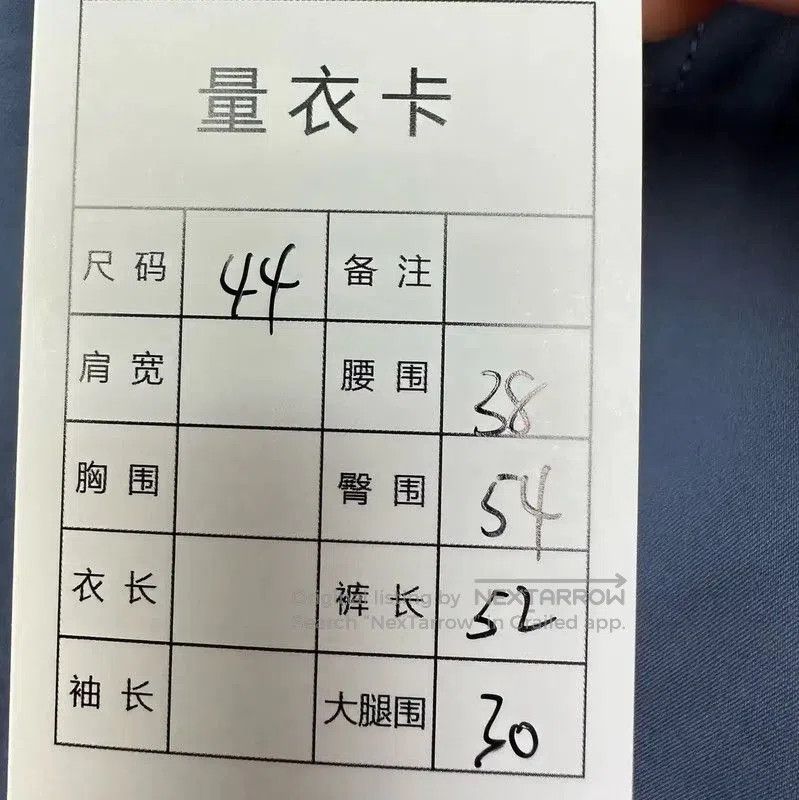 量衣卡
尺码 44 备注
肩宽 腰围 38
胸围 臀围 54
衣长 裤长 52
袖长 大腿围 30
Original listing by NEXTARROW
Search "NexTarrow" in Grailed app.